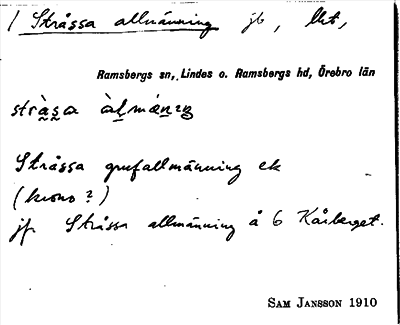 / Stråssa allmänning jb, lht,
Ramsbergs sn, Lindes o. Ramsbergs hd, Örebro län
Stråssa gruvallmänning ek
(krono ?)
jfr Stråssa allmänning å 6 Kårberget.
SAM JANSSON 1910